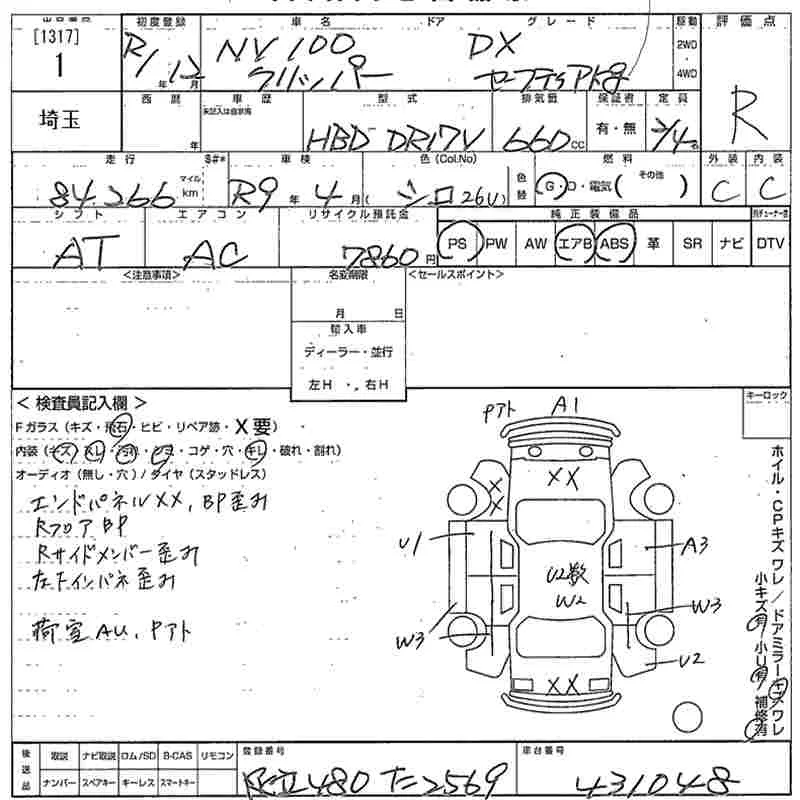 [1317]
1
埼玉
初度登録
R1 年 12 月
車名 ドア グレード
NV100 DX
クリッパー
駆動
2WD
・
4WD
評価点
R
西暦
年
車歴
未記入は自家用
型式
HBD DR17V
排気量
660cc
保証書
有・無
定員
2/4名
走行
84,266
マイル
km
S#*
車検
R9 年 4 月
色(Col.No)
シロ(26U)
色替
燃料
G・D・電気( その他 )
外装
C
内装
C
シフト
AT
エアコン
AC
リサイクル預託金
7860円
純正装備品
PS PW AW エアB ABS 革 SR ナビ DTV
<注意事項>
名変期限
月 日
輸入車
ディーラー・並行
左H ・, 右H
<セールスポイント>
< 検査員記入欄 >
Fガラス (キズ・飛石・ヒビ・リペア跡・X要)
内装 (キズ・スレ・汚れ・シミ・コゲ・穴・キレ・破れ・割れ)
オーディオ (無し・穴) / タイヤ (スタッドレス)
エンドパネルXX, BP歪み
RフロアBP
Rサイドメンバー歪み
左下インパネ歪み
荷室AU, Pアト
キーロック
Pアト A1
XX
X
X
U1
A3
U2数
W2
W3
W3
U2
XX
ホイル・CPキズ ワレ / ドアミラーキズワレ
小キズ有 小U有 補修有
後送品
取説 ナビ取説 ロム/SD B-CAS リモコン
ナンバー スペアキー キーレス スマートキー
登録番号
足立480 た2569
車台番号
431048